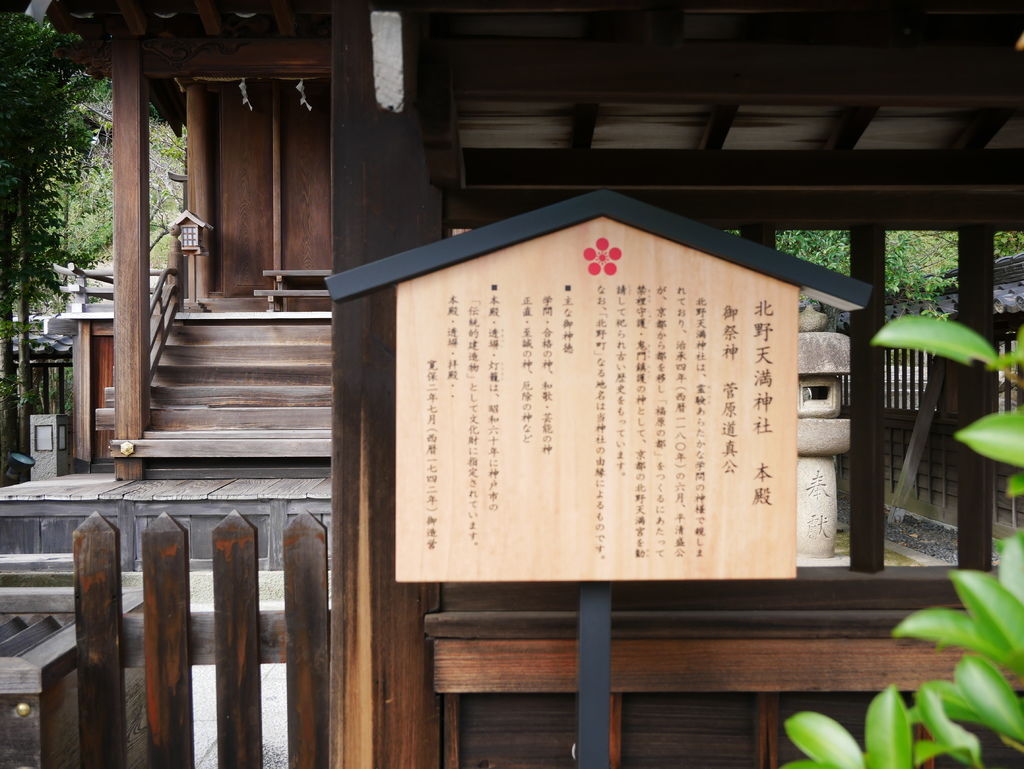 北野天満神社 本殿
御祭神 菅原道真公
北野天満神社は、霊験あらたかな学問の神様で親しま
れており、治承四年(西暦一一八〇年)の六月、平清盛公
が、京都から都を移し「福原の都」をつくるにあたって
禁裡守護・鬼門鎮護の神として、京都の北野天満宮を勧
請して祀られ古い歴史をもっています。
なお、「北野町」なる地名は当神社の由縁によるものです。
■主な御神徳
学問・合格の神、和歌・芸能の神
正直・至誠の神、厄除の神など
■本殿・透塀・灯籠は、昭和六十年に神戸市の
「伝統的建造物」として文化財に指定されています。
本殿・透塀・拝殿・
寛保二年七月(西暦一七四二年)御造営
奉献